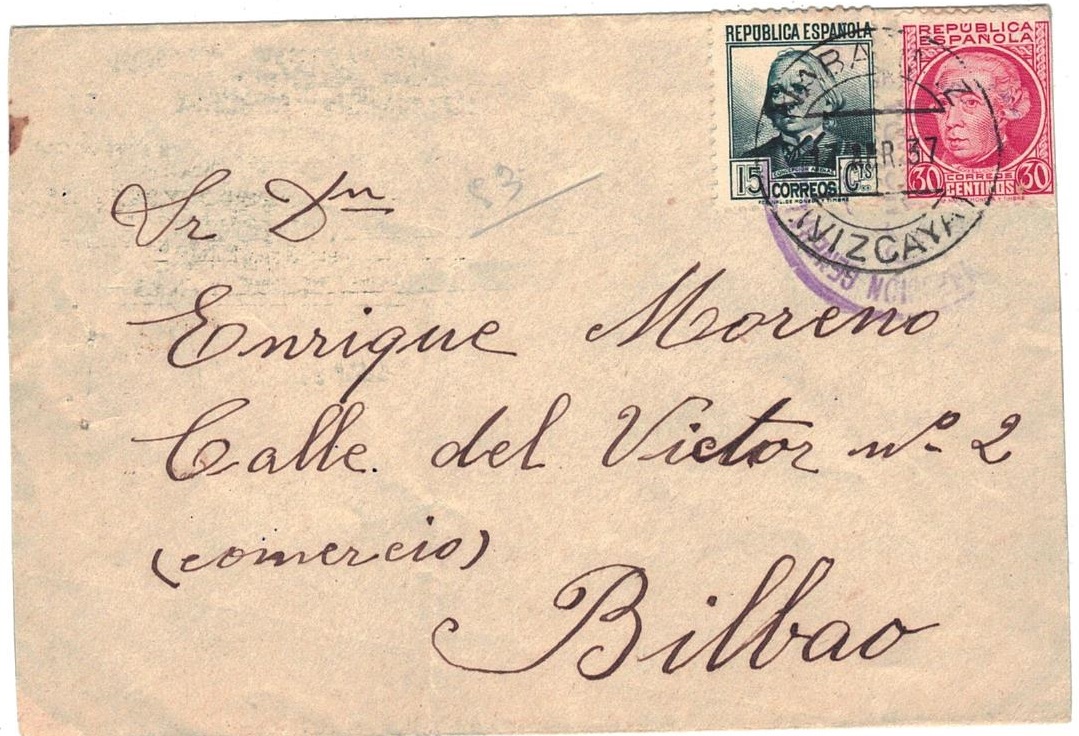 REPÚBLICA ESPAÑOLA
15 CORREOS Cts
REPÚBLICA
ESPAÑOLA
CORREOS
30 CENTIMOS 30
37
(VIZCAYA)
Sr Dn
Enrique Moreno
Calle del Victor nº 2
(comercio)
Bilbao